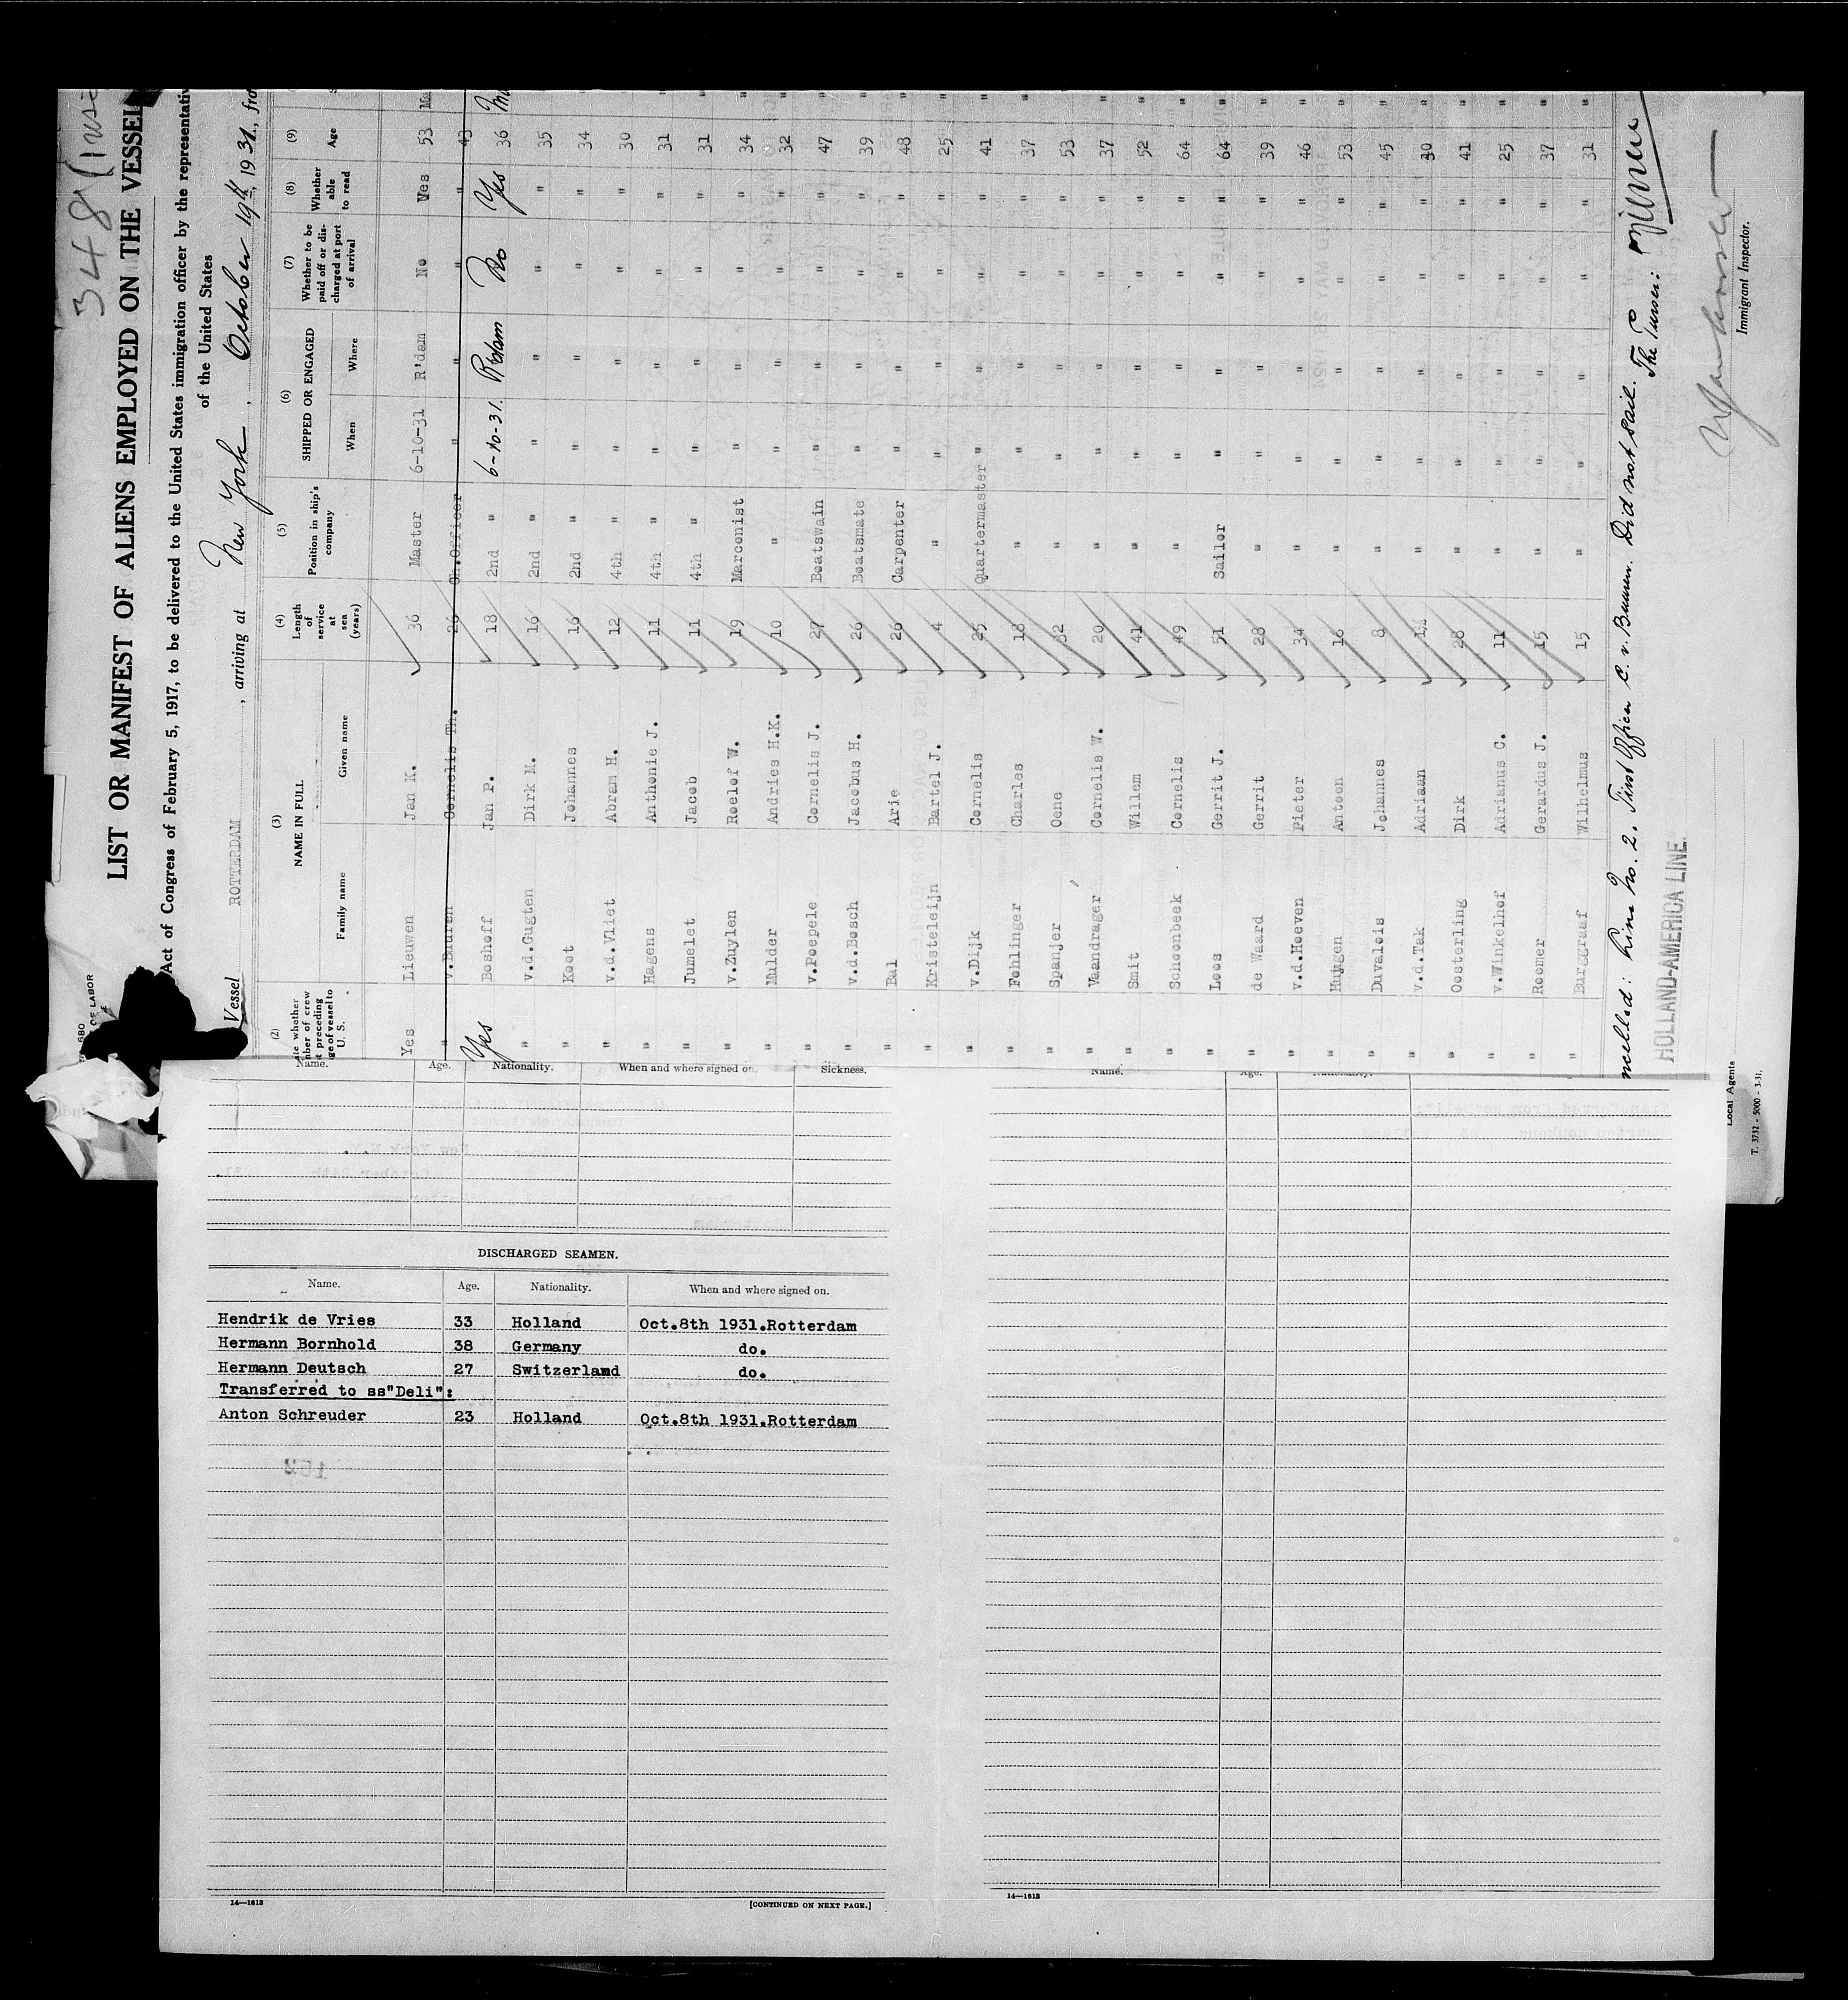 348
LIST OR MANIFEST OF ALIENS EMPLOYED ON THE VESSEL
Act of Congress of February 5, 1917, to be delivered to the United States immigration officer by the representativ
of the United States
Vessel ROTTERDAM, arriving at New York, October 19th, 1931, fro
680
OF LABOR
(2) (3) (4) (5) (6) (7) (8) (9)
NAME IN FULL
Family name Given name
Length of service at sea (years)
Position in ship's company
SHIPPED OR ENGAGED
When Where
Whether to be paid off or discharged at port of arrival
Whether able to read
Age
Yes Lieuwen Jan K. 36 Master 6-10-31 R'dam No Yes 53
" v.Bauren Cornelis Th. 26 Ch.Officer " " " " 43
Yes Boshoff Jan P. 18 2nd " 6-10-31. Rotdam No Yes 36
" v.d.Gugten Dirk M. 16 2nd " " " " " 35
" Koot Johannes 16 2nd " " " " " 34
" v.d.Vliet Abram H. 12 4th " " " " " 30
" Hagens Anthonie J. 11 4th " " " " " 31
" Jumelet Jacob 11 4th " " " " " 31
" v.Zuylen Roelof W. 19 Marconist " " " " 34
" Mulder Andries H.K. 10 " " " " " 32
" v.Poepele Cornelis J. 27 Boatswain " " " " 47
" v.d.Bosch Jacobus H. 26 Boatsmate " " " " 39
" Bal Arie 26 Carpenter " " " " 48
" Kristeleijn Bartel J. 4 " " " " " 25
" v.Dijk Cornelis 25 Quartermaster " " " " 41
" Fehlinger Charles 18 " " " " " 37
" Spanjer Oene 32 " " " " " 53
" Vaandrager Cornelis W. 20 " " " " " 37
" Smit Willem 41 " " " " " 52
" Schoonbeek Cornelis 49 " " " " " 64
" Loos Gerrit J. 51 Sailor " " " " 64
" de Waard Gerrit 28 " " " " " 39
" v.d.Hoeven Pieter 34 " " " " " 46
" Huygen Antoon 16 " " " " " 53
" Duvalois Johannes 8 " " " " " 45
" v.d.Tak Adriaan " " " " " 30
" Oosterling Dirk 28 " " " " " 41
" v.Winkelhof Adrianus C. 11 " " " " " 25
" Roomer Gerardus J. 15 " " " " " 37
" Burggraaf Wilhelmus 15 " " " " " 31
ncelled: Line No. 2. First Officer C. v. Bauren. Did not sail. The Purser:
HOLLAND-AMERICA LINE
Local Agents
Immigrant Inspector.
T. 3732 - 5000 - 3-31.
Name. Age. Nationality. When and where signed on. Sickness.
Name. Age. Nationality.
DISCHARGED SEAMEN.
Name. Age. Nationality. When and where signed on.
Hendrik de Vries 33 Holland Oct.8th 1931.Rotterdam
Hermann Bornhold 38 Germany do.
Hermann Deutsch 27 Switzerland do.
Transferred to ss"Deli":
Anton Schreuder 23 Holland Oct.8th 1931.Rotterdam
14—1613 [CONTINUED ON NEXT PAGE.]
14—1613